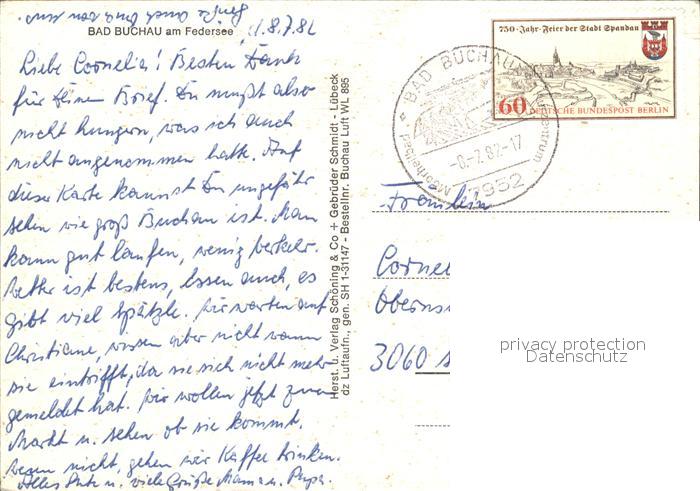 BAD BUCHAU am Federsee
d. 8.7.82
Liebe Cornelia! Besten Dank
für Deinen Brief. Du mußt also
nicht hungern, was ich auch
nicht angenommen hatte. Auf
dieser Karte kannst Du ungefähr
sehen wie groß Buchau ist. Man
kann gut laufen, wenig Verkehr.
Wetter ist bestens, Essen auch, es
gibt viel Spätzle. Wir warten auf
Christiane, wissen aber nicht wann
sie eintrifft, da sie sich nicht mehr
gemeldet hat. Wir wollen jetzt zum
Markt u. sehen ob sie kommt.
Wenn nicht, gehen wir Kaffee trinken.
Alles Gute u. viele Grüße Mama u. Papa.
Herst. u. Verlag Schöning & Co + Gebrüder Schmidt - Lübeck
dz Luftaufn., gen. SH 1-31147 - Bestellnr. Buchau Luft WL 895
750-Jahr-Feier der Stadt Spandau
60 DEUTSCHE BUNDESPOST BERLIN
BAD BUCHAU
Moorheilbad
-8.-7.82-17
7952
Fräulein
Corne
Obern
3060
privacy protection
Datenschutz